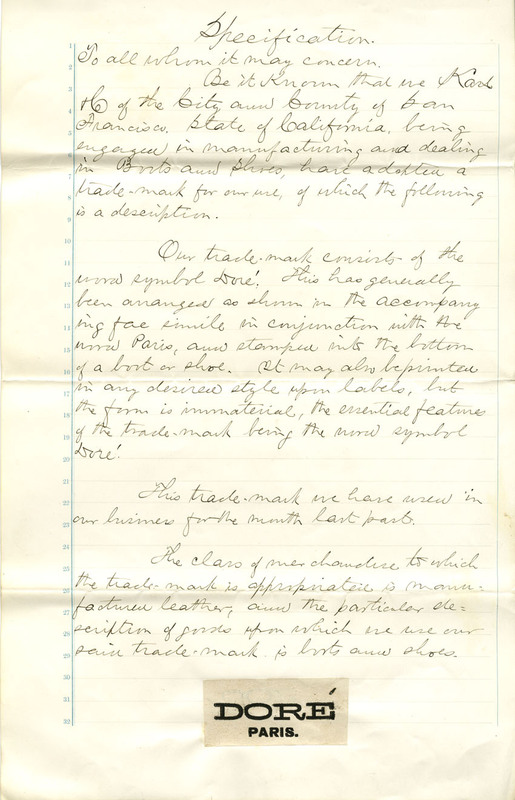 Specification.
To all whom it may concern.
Be it Known that we Karl
& Co of the City and County of San
Francisco, State of California, being
engaged in manufacturing and dealing
in Boots and Shoes, have adopted a
trade-mark for our use, of which the following
is a description.
Our trade-mark consists of the
word symbol Doré. This has generally
been arranged as shown in the accompany
ing fac simile in conjunction with the
word Paris, and stamped into the bottom
of a boot or shoe. It may also be printed
in any desired style upon labels, but
the form is immaterial, the essential features
of the trade-mark being the word symbol
Doré.
This trade-mark we have used in
our business for the month last past.
The class of merchandise to which
the trade-mark is appropriated is manu-
factured leather, and the particular de=
scription of goods upon which we use our
said trade-mark is boots and shoes.
DORÉ
PARIS.